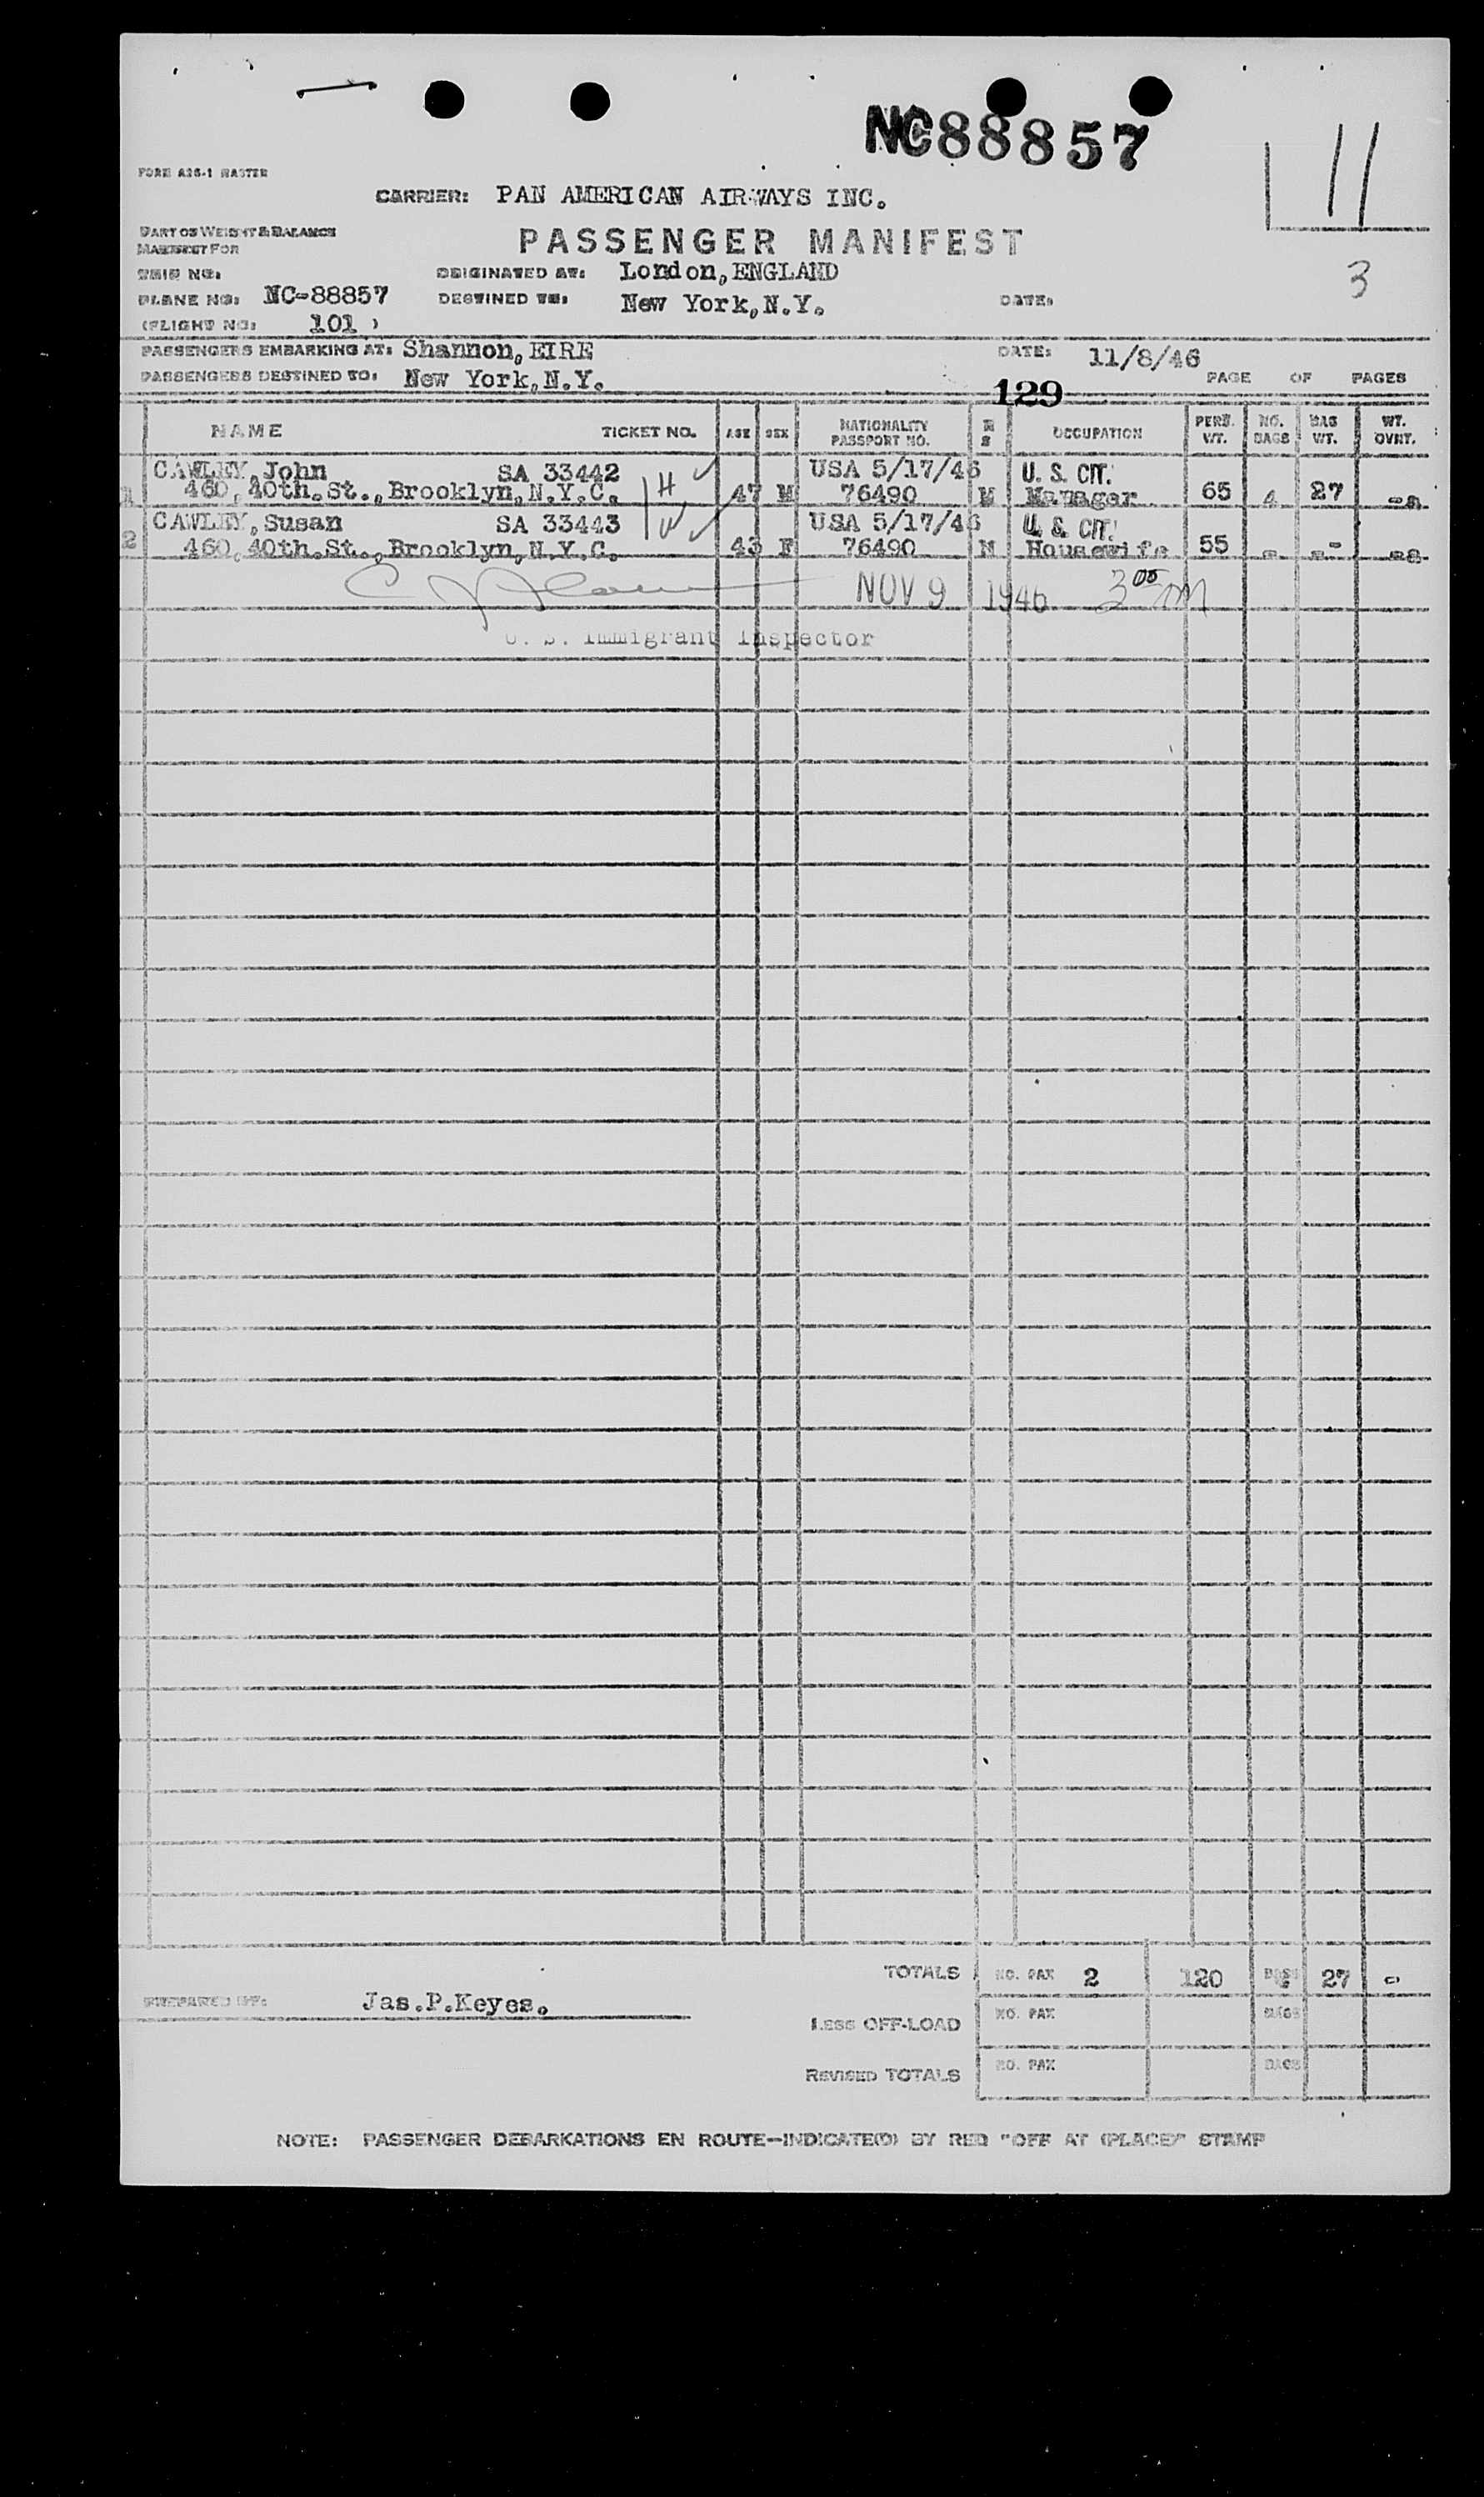 NC88857
11
3
FORM A26-1 MASTER
CARRIER: PAN AMERICAN AIRWAYS INC.
PART OF WEIGHT & BALANCE
MANIFEST FOR
PASSENGER MANIFEST
TRIP NO:
ORIGINATED AT: London, ENGLAND
PLANE NO: NC-88857
DESTINED TO: New York, N.Y.
DATE:
(FLIGHT NO: 101 )
PASSENGERS EMBARKING AT: Shannon, EIRE
DATE: 11/8/46
PASSENGERS DESTINED TO: New York, N.Y.
PAGE OF PAGES
129
NAME TICKET NO. AGE SEX NATIONALITY PASSPORT NO. M S OCCUPATION PERS. WT. NO. BAGS BAG WT. WT. OVRT.
CAWLEY, John SA 33442 H USA 5/17/46 U. S. CIT.
1 460, 40th. St., Brooklyn, N.Y.C. 47 M 76490 M Manager 65 4 27 --
CAWLEY, Susan SA 33443 W USA 5/17/46 U. S. CIT.
2 460, 40th. St., Brooklyn, N.Y.C. 43 F 76490 M Housewife 55 - -- --
NOV 9 1946 3 05 AM
U. S. Immigrant Inspector
TOTALS NO. PAX 2 120 BAGS 27 -
PREPARED BY: Jas.P.Keyes.
LESS OFF-LOAD NO. PAX BAGS
REVISED TOTALS NO. PAX BAGS
NOTE: PASSENGER DEBARKATIONS EN ROUTE—INDICATE(D) BY RED "OFF AT (PLACE)" STAMP